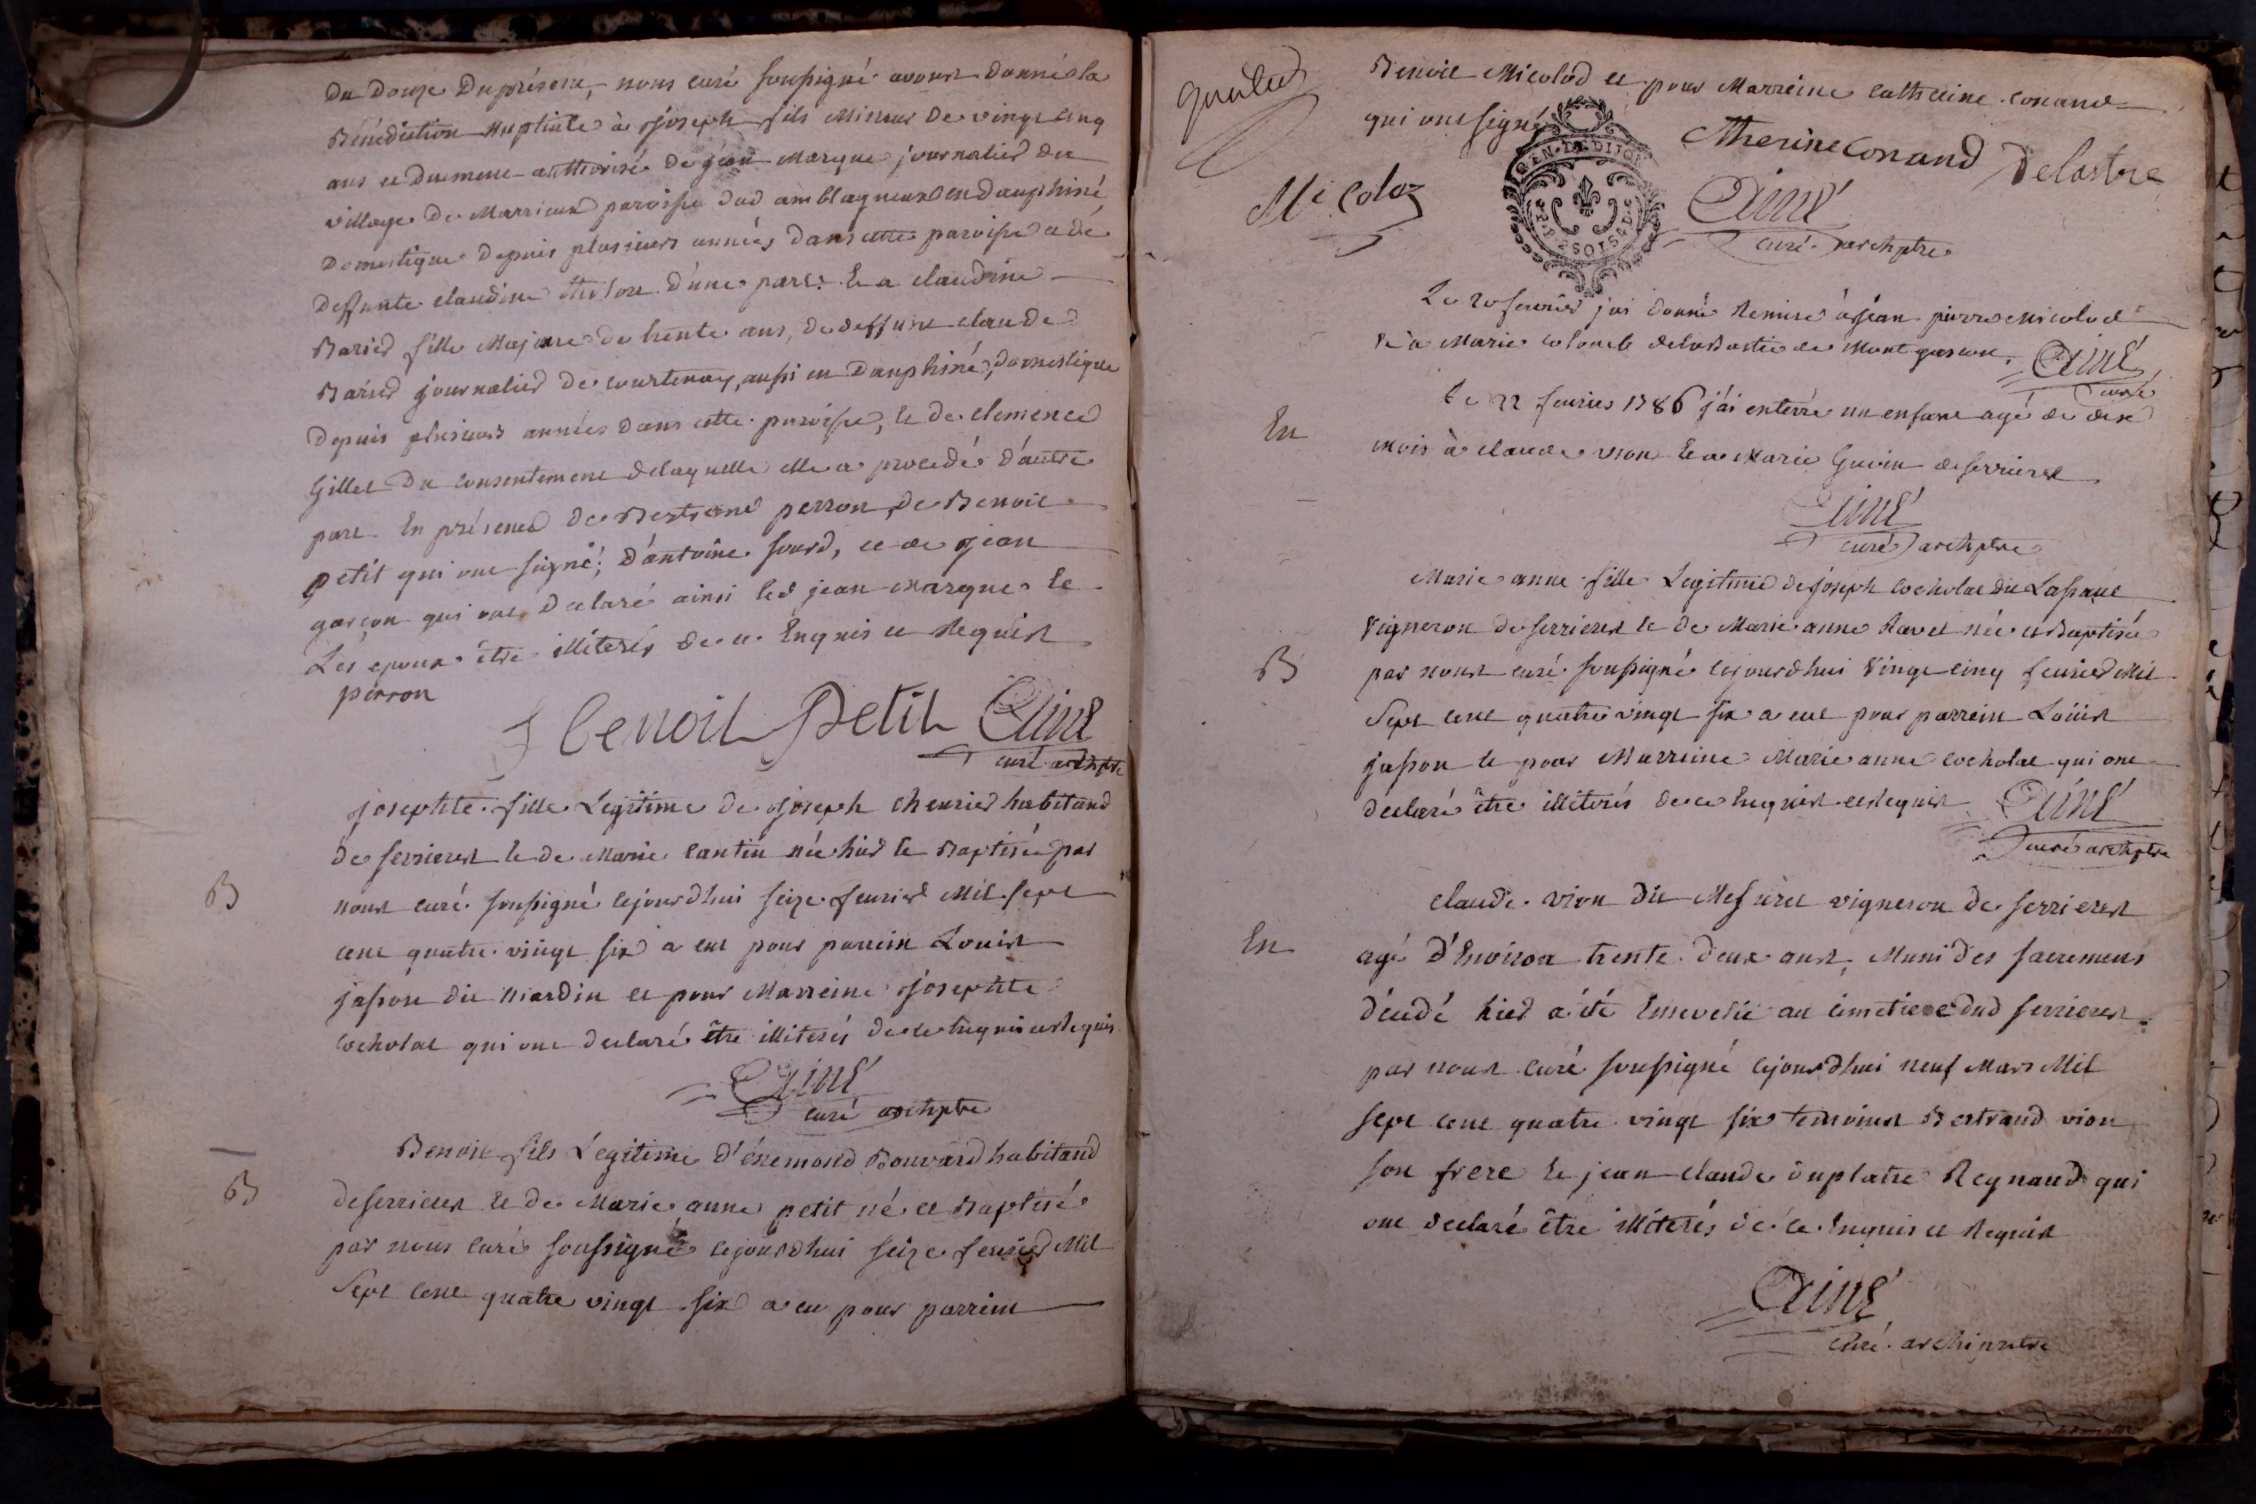 du douze du présent, nous curé soussigné avons donné la
Bénédiction Nuptiale à joseph fils Mineur de vingt cinq
ans et dument authorisé de jean Marque journalier du
village de Marrieux paroisse dud amblagneux en Dauphiné
Domestique depuis plusieurs années dans cette paroisse et de
deffunte claudine d'une part. Et a claudine
Barier fille Majeure de trente ans, de deffunt claude
Barier journalier de courtenay, aussi en Dauphiné, domestique
depuis plusieurs années dans cette paroisse, et de clemence
Gillet du consentement de laquelle elle a procédé d'autre
part En présence de Bertrand perron, de Benoit
petit qui ont signé, d'antoine sourd, et de jean
garçon qui ont declaré ainsi led jean Marque et
Les epoux être illiterés de ce Enquis et Requis
perron
benoit petit Aimé
curé archiptre
josephte fille Legitime de joseph chevrier habitand
de serrieres et de Marie cantin née hier et Baptisée par
B
nous curé soussigné cejourdhui seize fevrier Mil sept
cent quatre vingt six a eut pour parrein Louis
jasson dit Mardin et pour Marreine josephte
cocholat qui ont declaré être illiterés de ce Enquis et Requis
Aimé
curé archiptre
Benoit fils Legitime d'énemond Bouvard habitand
B
de serrieres et de Marie anne petit né et Baptisé
par nous curé soussigné cejourdhui seize fevrier Mil
sept cent quatre vingt six a eu pour parrein
Benoit Micolod et pour Marreine catherine conand
qui ont signé
GEN. DE DIJON
Ctherine Conand Delastre
Micoloz
Aimé
curé archiptre
Le 20 fevrier j'ai donné Remise à jean pierre Micolod
et à Marie colomb de la Bastie de Montgascon. Aimé
curé
Le 22 fevrier 1786 j'ai enterré un enfant agé de dix
En
mois à claude vion et a Marie Guoin de serrieres
Aimé
curé archiptre
Marie anne fille Legitime de joseph cocholat dit Lafaue
Vigneron de serrieres et de Marie anne Ravet née et Baptisée
B
par nous curé soussigné cejourdhui vingt cinq fevrier Mil
sept cent quatre vingt six a eut pour parrein Louis
jasson et pour Marreine Marie anne cocholat qui ont
declaré être illiterés de ce Enquis et Requis Aimé
curé archiptre
claude vion dit Mesuret vigneron de serrieres
En
agé d'Environ trente deux ans, Muni des sacremens
décédé hier a été Enseveli au cimetiere dud serrieres
par nous curé soussigné cejourdhui neuf Mars Mil
sept cent quatre vingt six temoins Bertrand vion
son frere et jean claude duplatre Reynaud qui
ont declaré être illiterés de ce Enquis et Requis
Aimé
curé archiprêtre